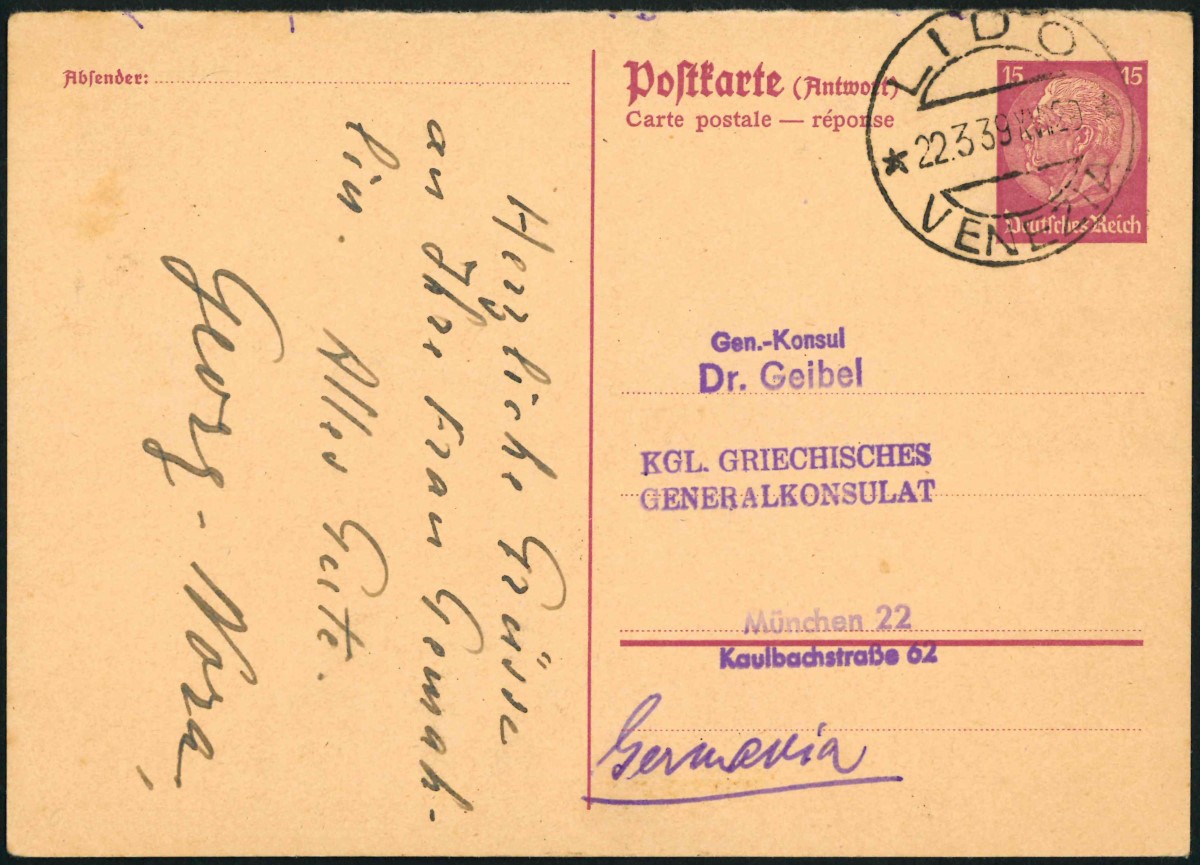 Absender:
Herzliche Grüsse
an Ihre Frau Gemah-
lin.
Alles Gute.
Georg-Nora
Postkarte (Antwort)
Carte postale — réponse
LIDO
22.3.39 XVII
VENEZIA
15 15
Deutsches Reich
Gen.-Konsul
Dr. Geibel
KGL. GRIECHISCHES
GENERALKONSULAT
München 22
Kaulbachstraße 62
Germania